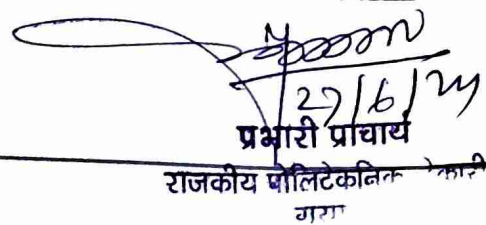 27/6/24
प्रभारी प्राचार्य
राजकीय पोलिटेकनिक
गया